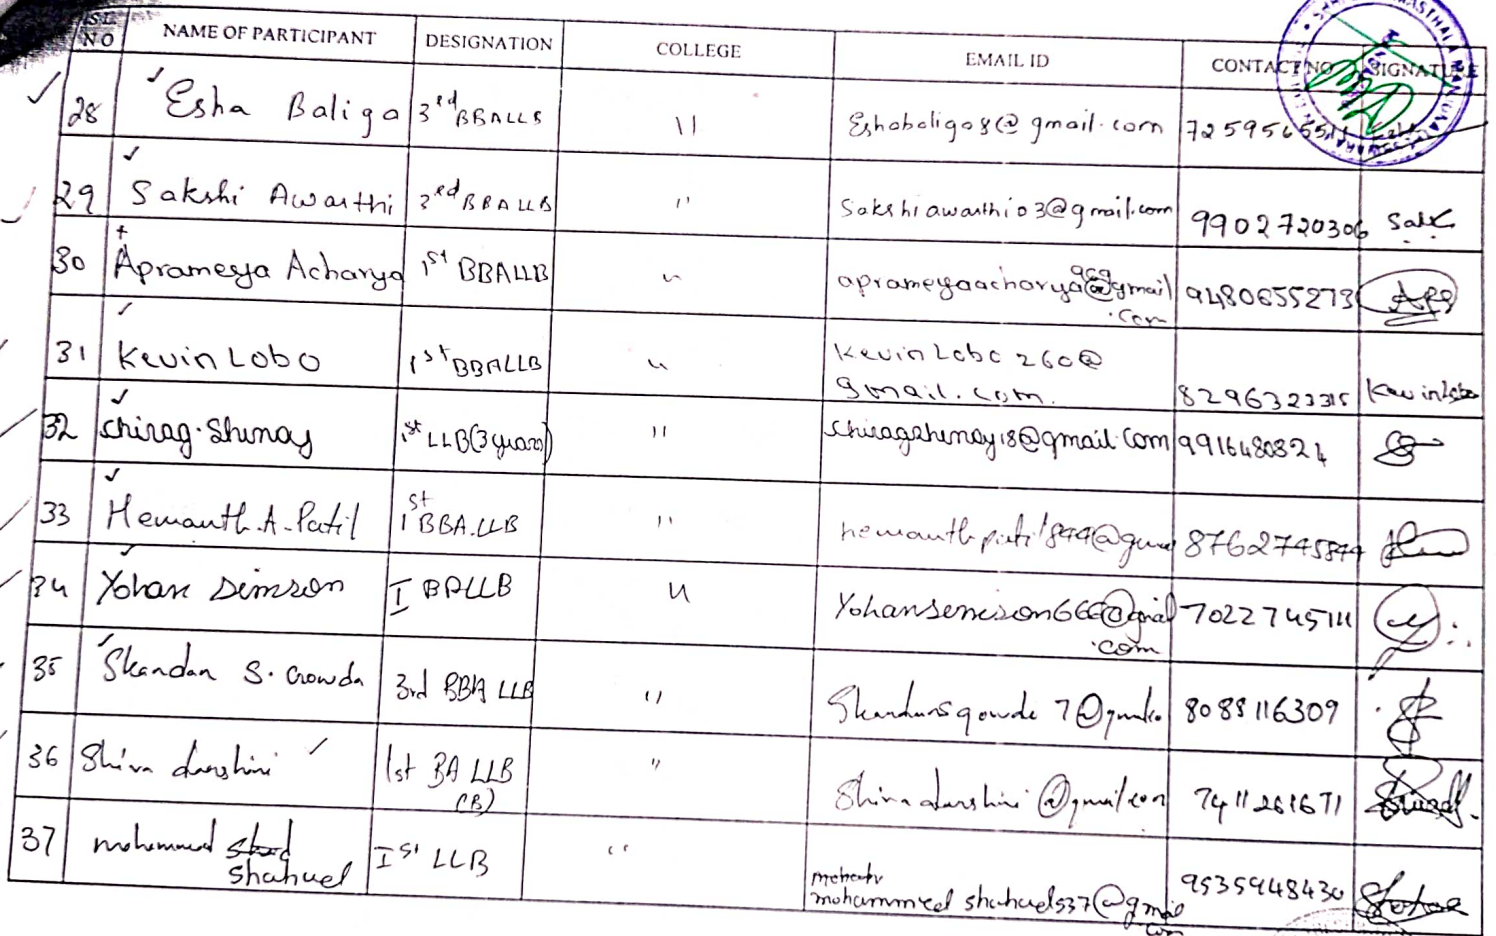 SL NO NAME OF PARTICIPANT DESIGNATION COLLEGE EMAIL ID CONTACT NO SIGNATURE
28 Esha Baliga 3rd BBALLB 11 Eshabaliga8@gmail.com
29 Sakshi Awasthi 3rd BBALLB " Sakshiawasthi03@gmail.com 9902720306
30 Aprameya Acharya 1st BBALLB " aprameyaacharya969@gmail.com 9480655273
31 Kevin Lobo 1st BBALLB " Kevin Lobo 260@
gmail.com. 8296323315 Kevin Lobo
32 Chirag.Shenoy 1st LLB(3 years) " Chiragshenoy18@gmail.com 9916480824
33 Hemanth.A.Patil 1st BBA.LLB " hemanthpatil844@gmail 8762745844
34 Yohan Simson I BALLB " 7022745111
.com
35 Skandan S. Gowda 3rd BBA LLB " Skandansgowda 7@gmail 8088116309
36 Shiva darshini 1st BA LLB " Shivadarshini@gmail.com 7411261671
(B)
37 mohammed I st LLB " 9535948430
Shahuel mohammed shahuel537@gmail
com